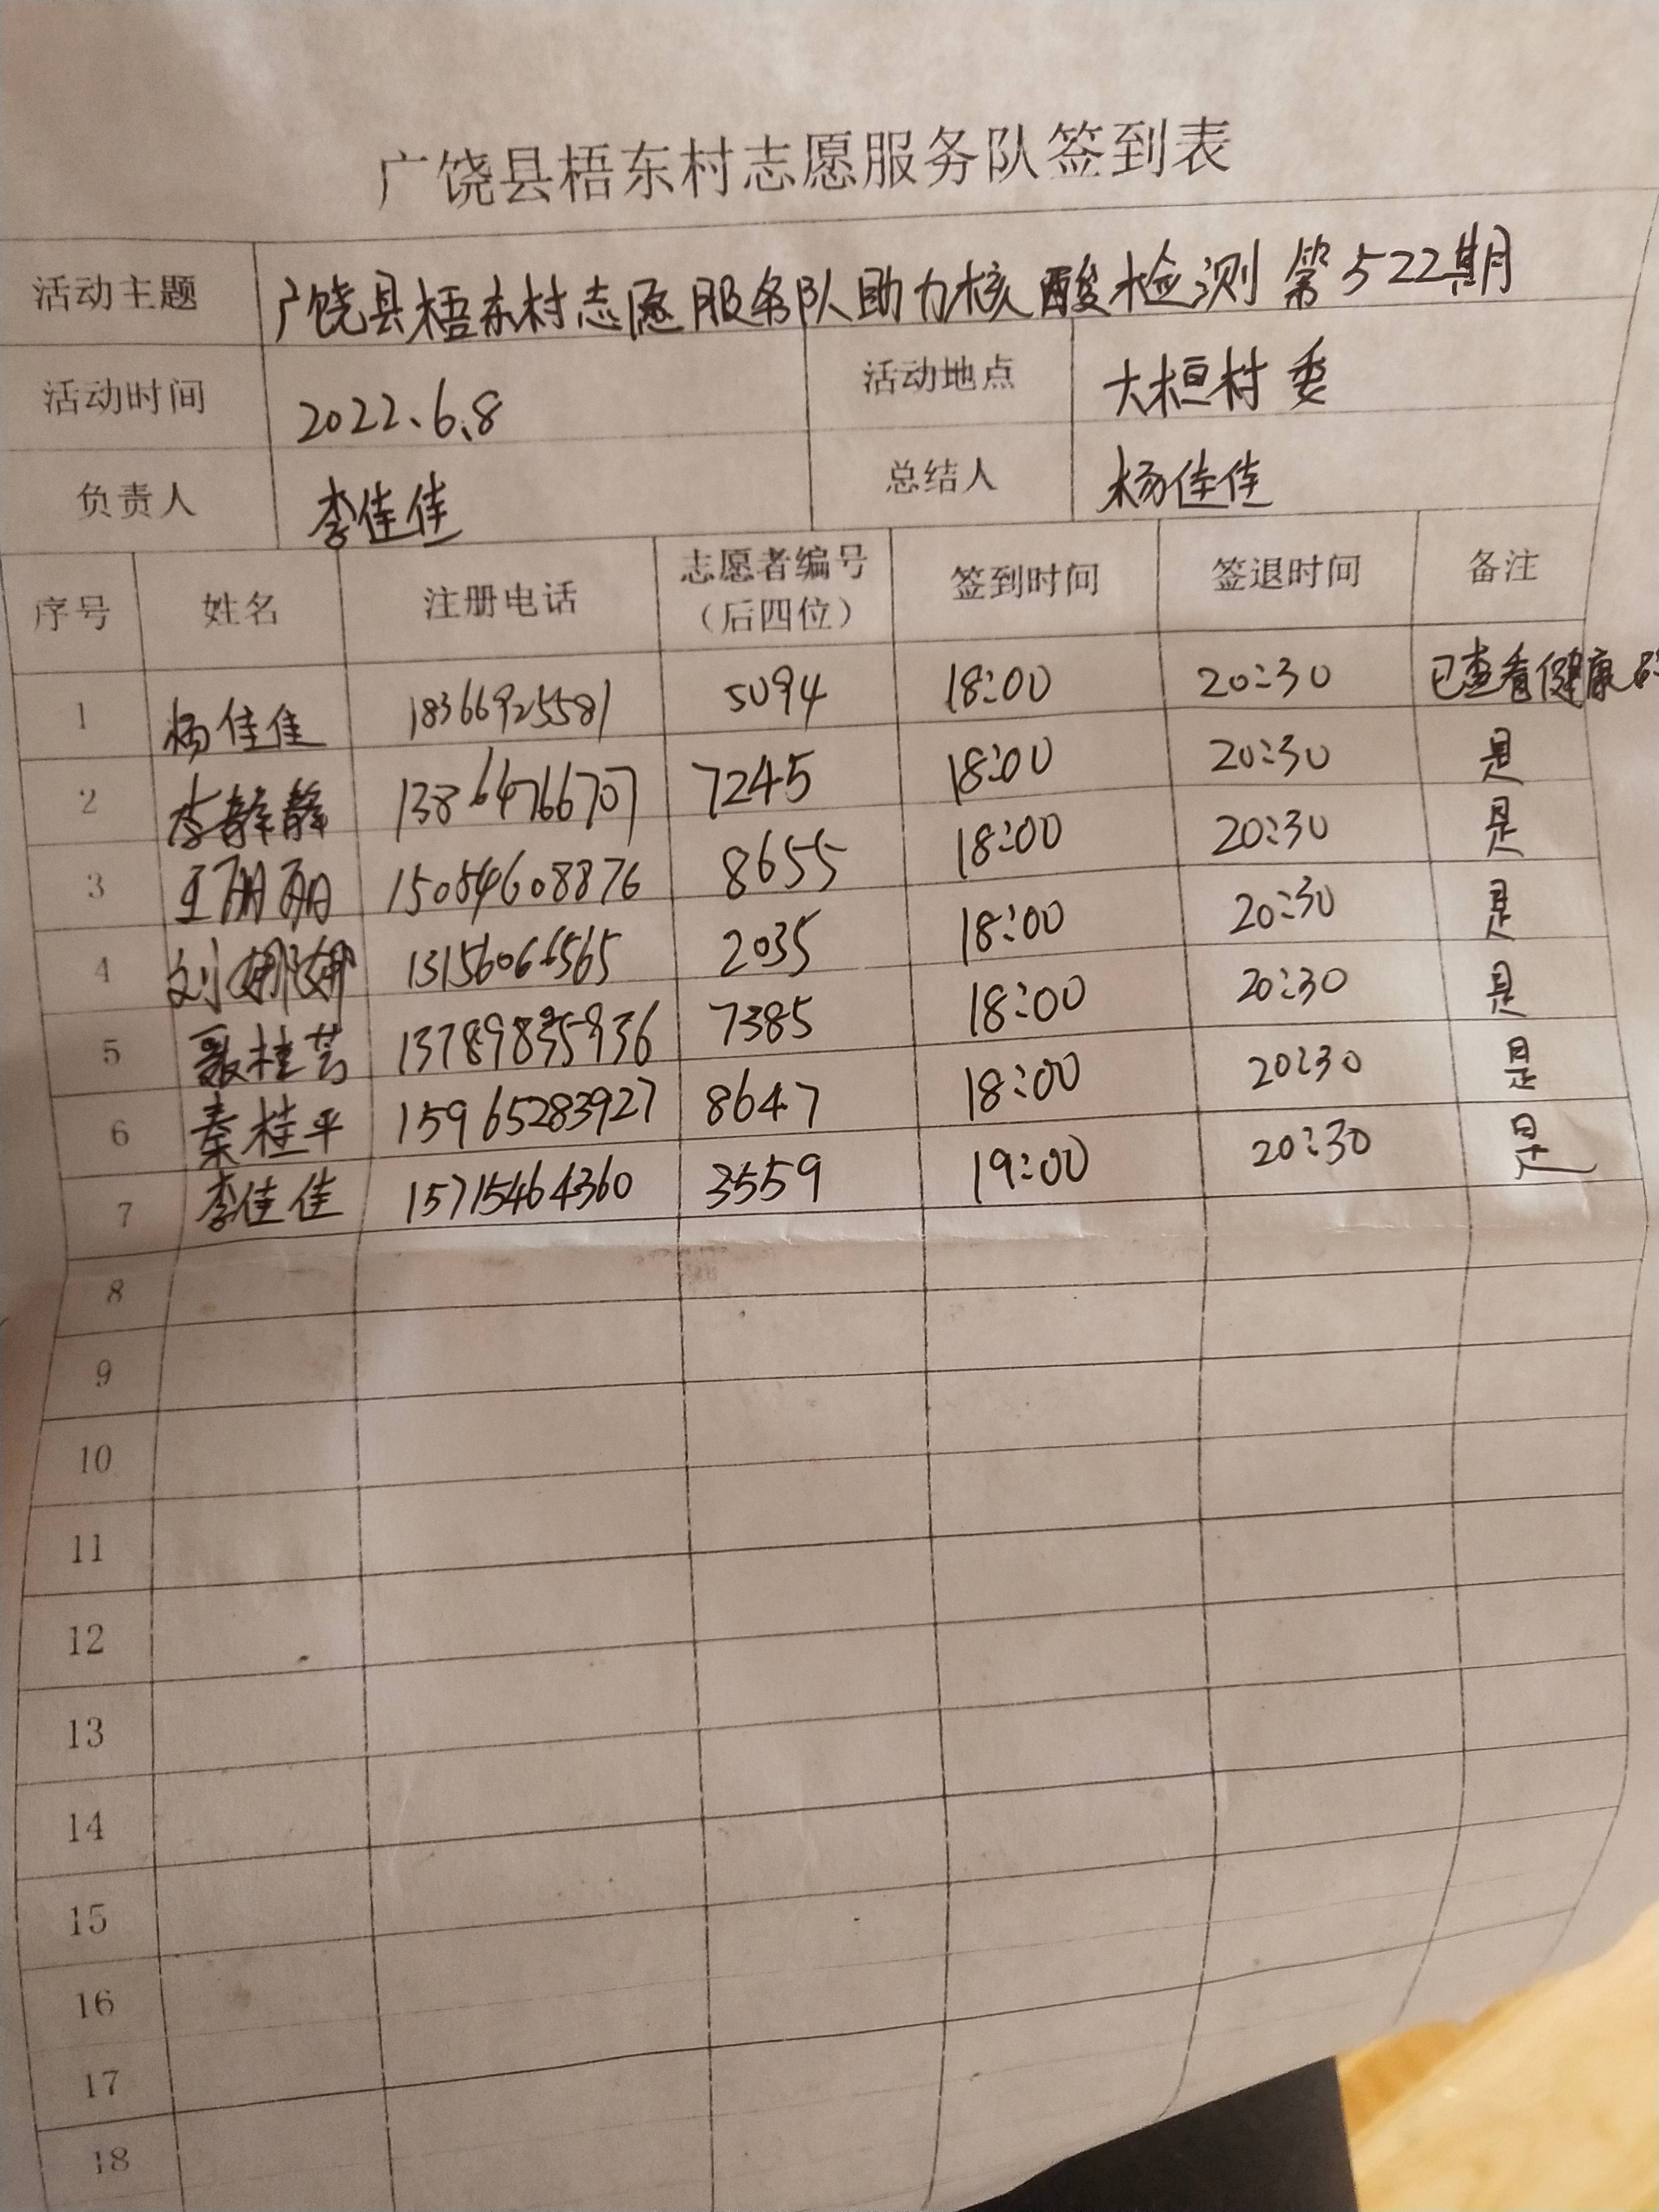 广饶县梧东村志愿服务队签到表
活动主题 广饶县梧东村志愿服务队助力核酸检测第522期
活动时间 2022、6、8 活动地点 大桓村委
负责人 李佳佳 总结人 杨佳佳
序号 姓名 注册电话 志愿者编号（后四位） 签到时间 签退时间 备注
1 杨佳佳 18366925581 5094 18:00 20:30 已查看健康码
2 李静静 13864766707 7245 18:00 20:30 是
3 王丽丽 15054608876 8655 18:00 20:30 是
4 刘娜娜 13156066565 2035 18:00 20:30 是
5 桂芸 7385 18:00 20:30 是
6 秦桂平 15965283927 8647 18:00 20:30 是
7 李佳佳 15715464360 3559 19:00 20:30 是
8
9
10
11
12
13
14
15
16
17
18